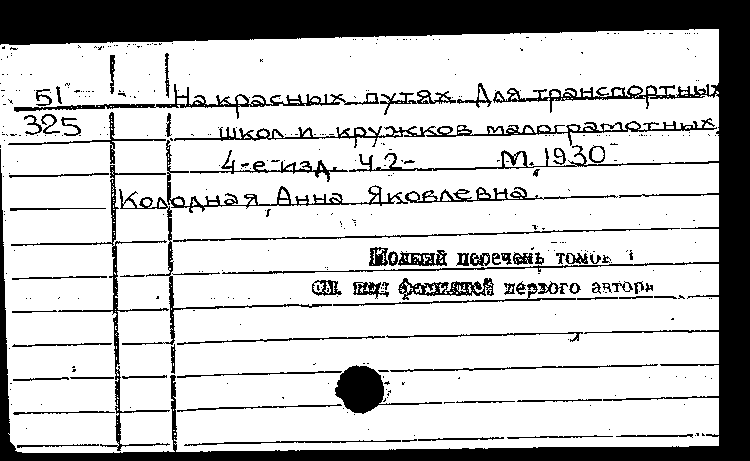 51 На красных путях. Для транспортных
325 школ и кружков малограмотных.
4-е изд. Ч.2- М., 1930
Колодная, Анна Яковлевна.
Полный перечень томов
см. под фамилией первого автора